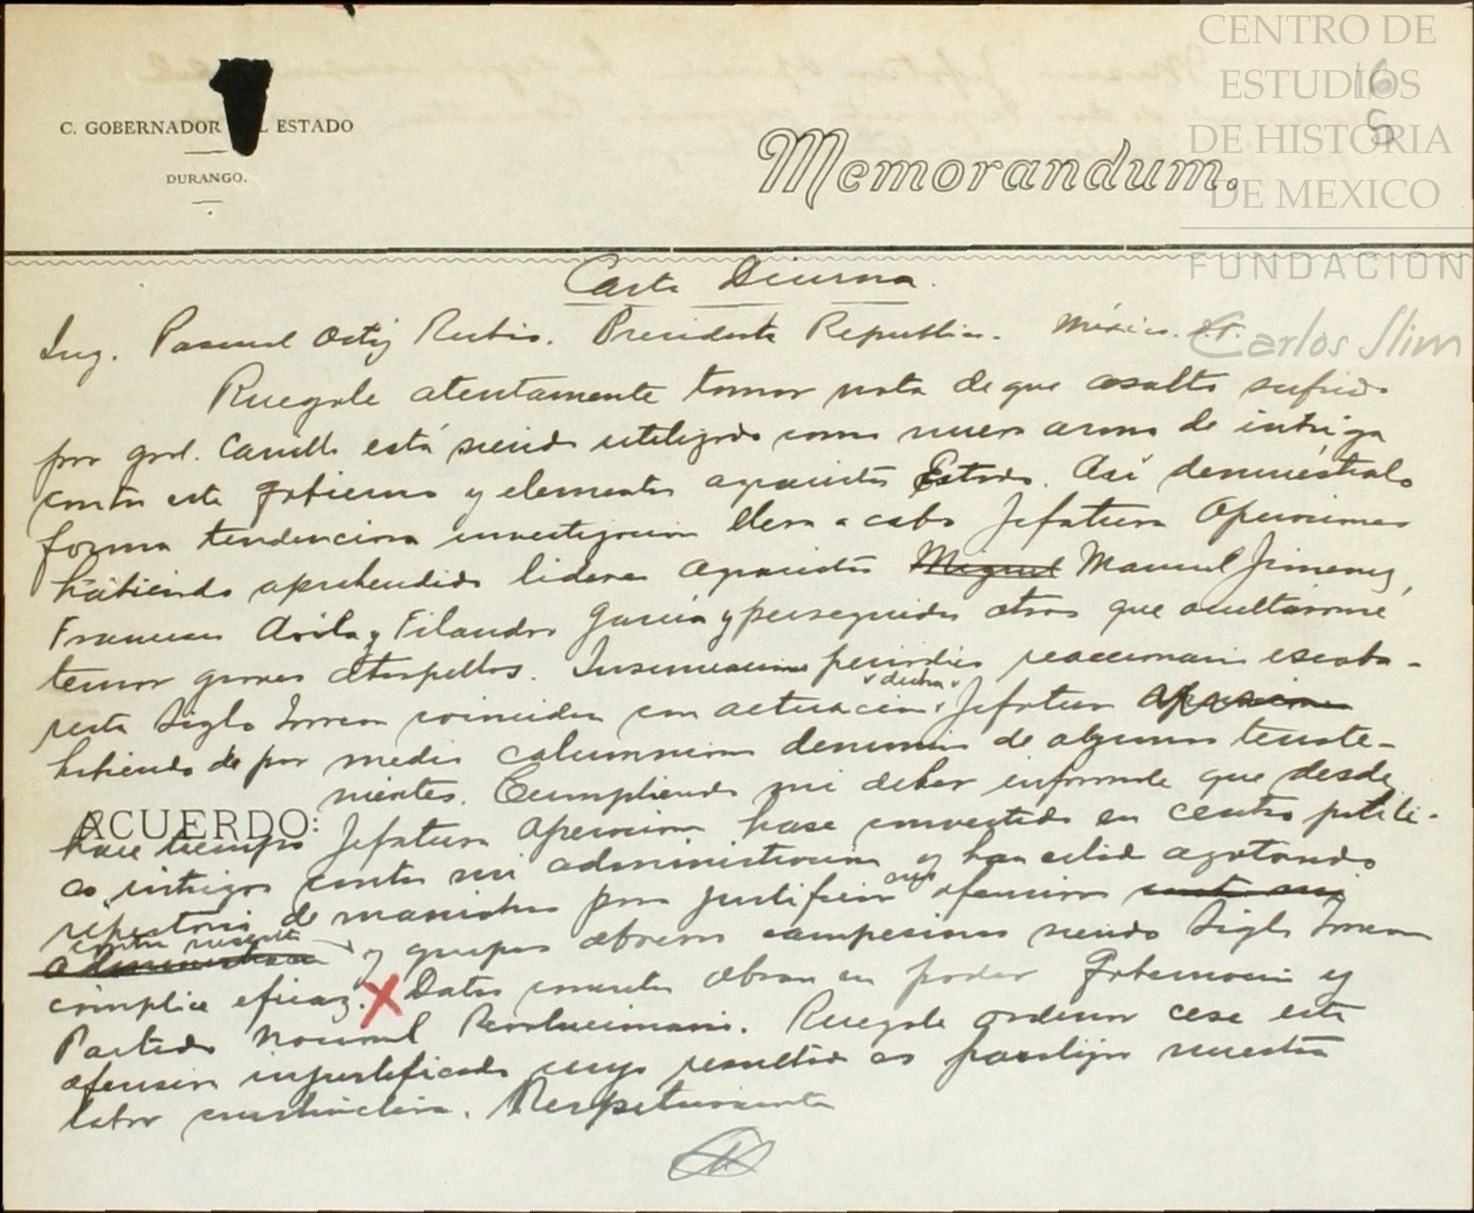 CENTRO DE
ESTUDIOS
DE HISTORIA
DE MEXICO
FUNDACION
Carlos Slim
16
5
C. GOBERNADOR L ESTADO
DURANGO.
Memorandum.
Carta Diurna.
Ing. Pascual Ortiz Rubio. Presidente Republica. México. D.F.
Ruegole atentamente tomar nota de que asalto sufrido
por gral. Carrillo está siendo utilizado como nueva arma de intriga
contra este gobierno y elementos agraristas Estado. Así demuéstralo
forma tendenciosa investigacion lleva a cabo Jefatura Operaciones
habiendo aprehendido lideres agraristas Miguel Manuel Jimenez,
Francisco Avila y Filandro Garcia y perseguido otros que ocultáronse
temor graves atropellos. Insinuaciones periodico reaccionario escaba-
resta Siglo Torreon coinciden con actuacion dicha Jefatura Operaciones
habiendo de por medio calumniosa denuncia de algunos terrate-
nientes. Cumpliendo mi deber informole que desde
ACUERDO:
hace tiempo Jefatura Operaciones hase convertido en centro politi-
co intrigas contra mi administracion y han estado agotando
repertorio de maniobras para justificar ofensiva contra mi
administracion y grupos obreros campesinos siendo Siglo Torreon
cómplice eficaz. X Datos concretos obran en poder Gobernacion y
Partido Nacional Revolucionario. Ruegole ordenar cese esta
ofensiva injustificada cuyo resultado es paraliza nuestra
labor constructiva. Respetuosamente